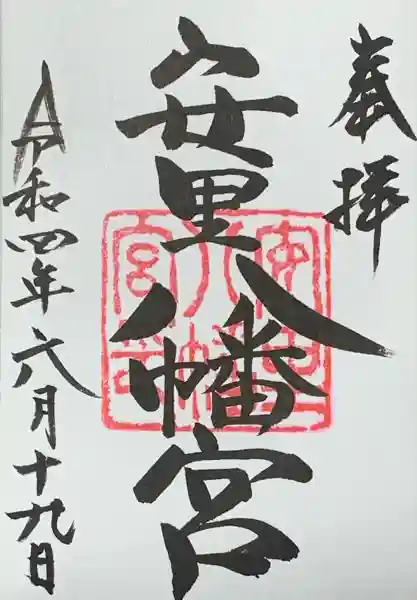 奉拝
安里八幡宮
令和四年六月十九日